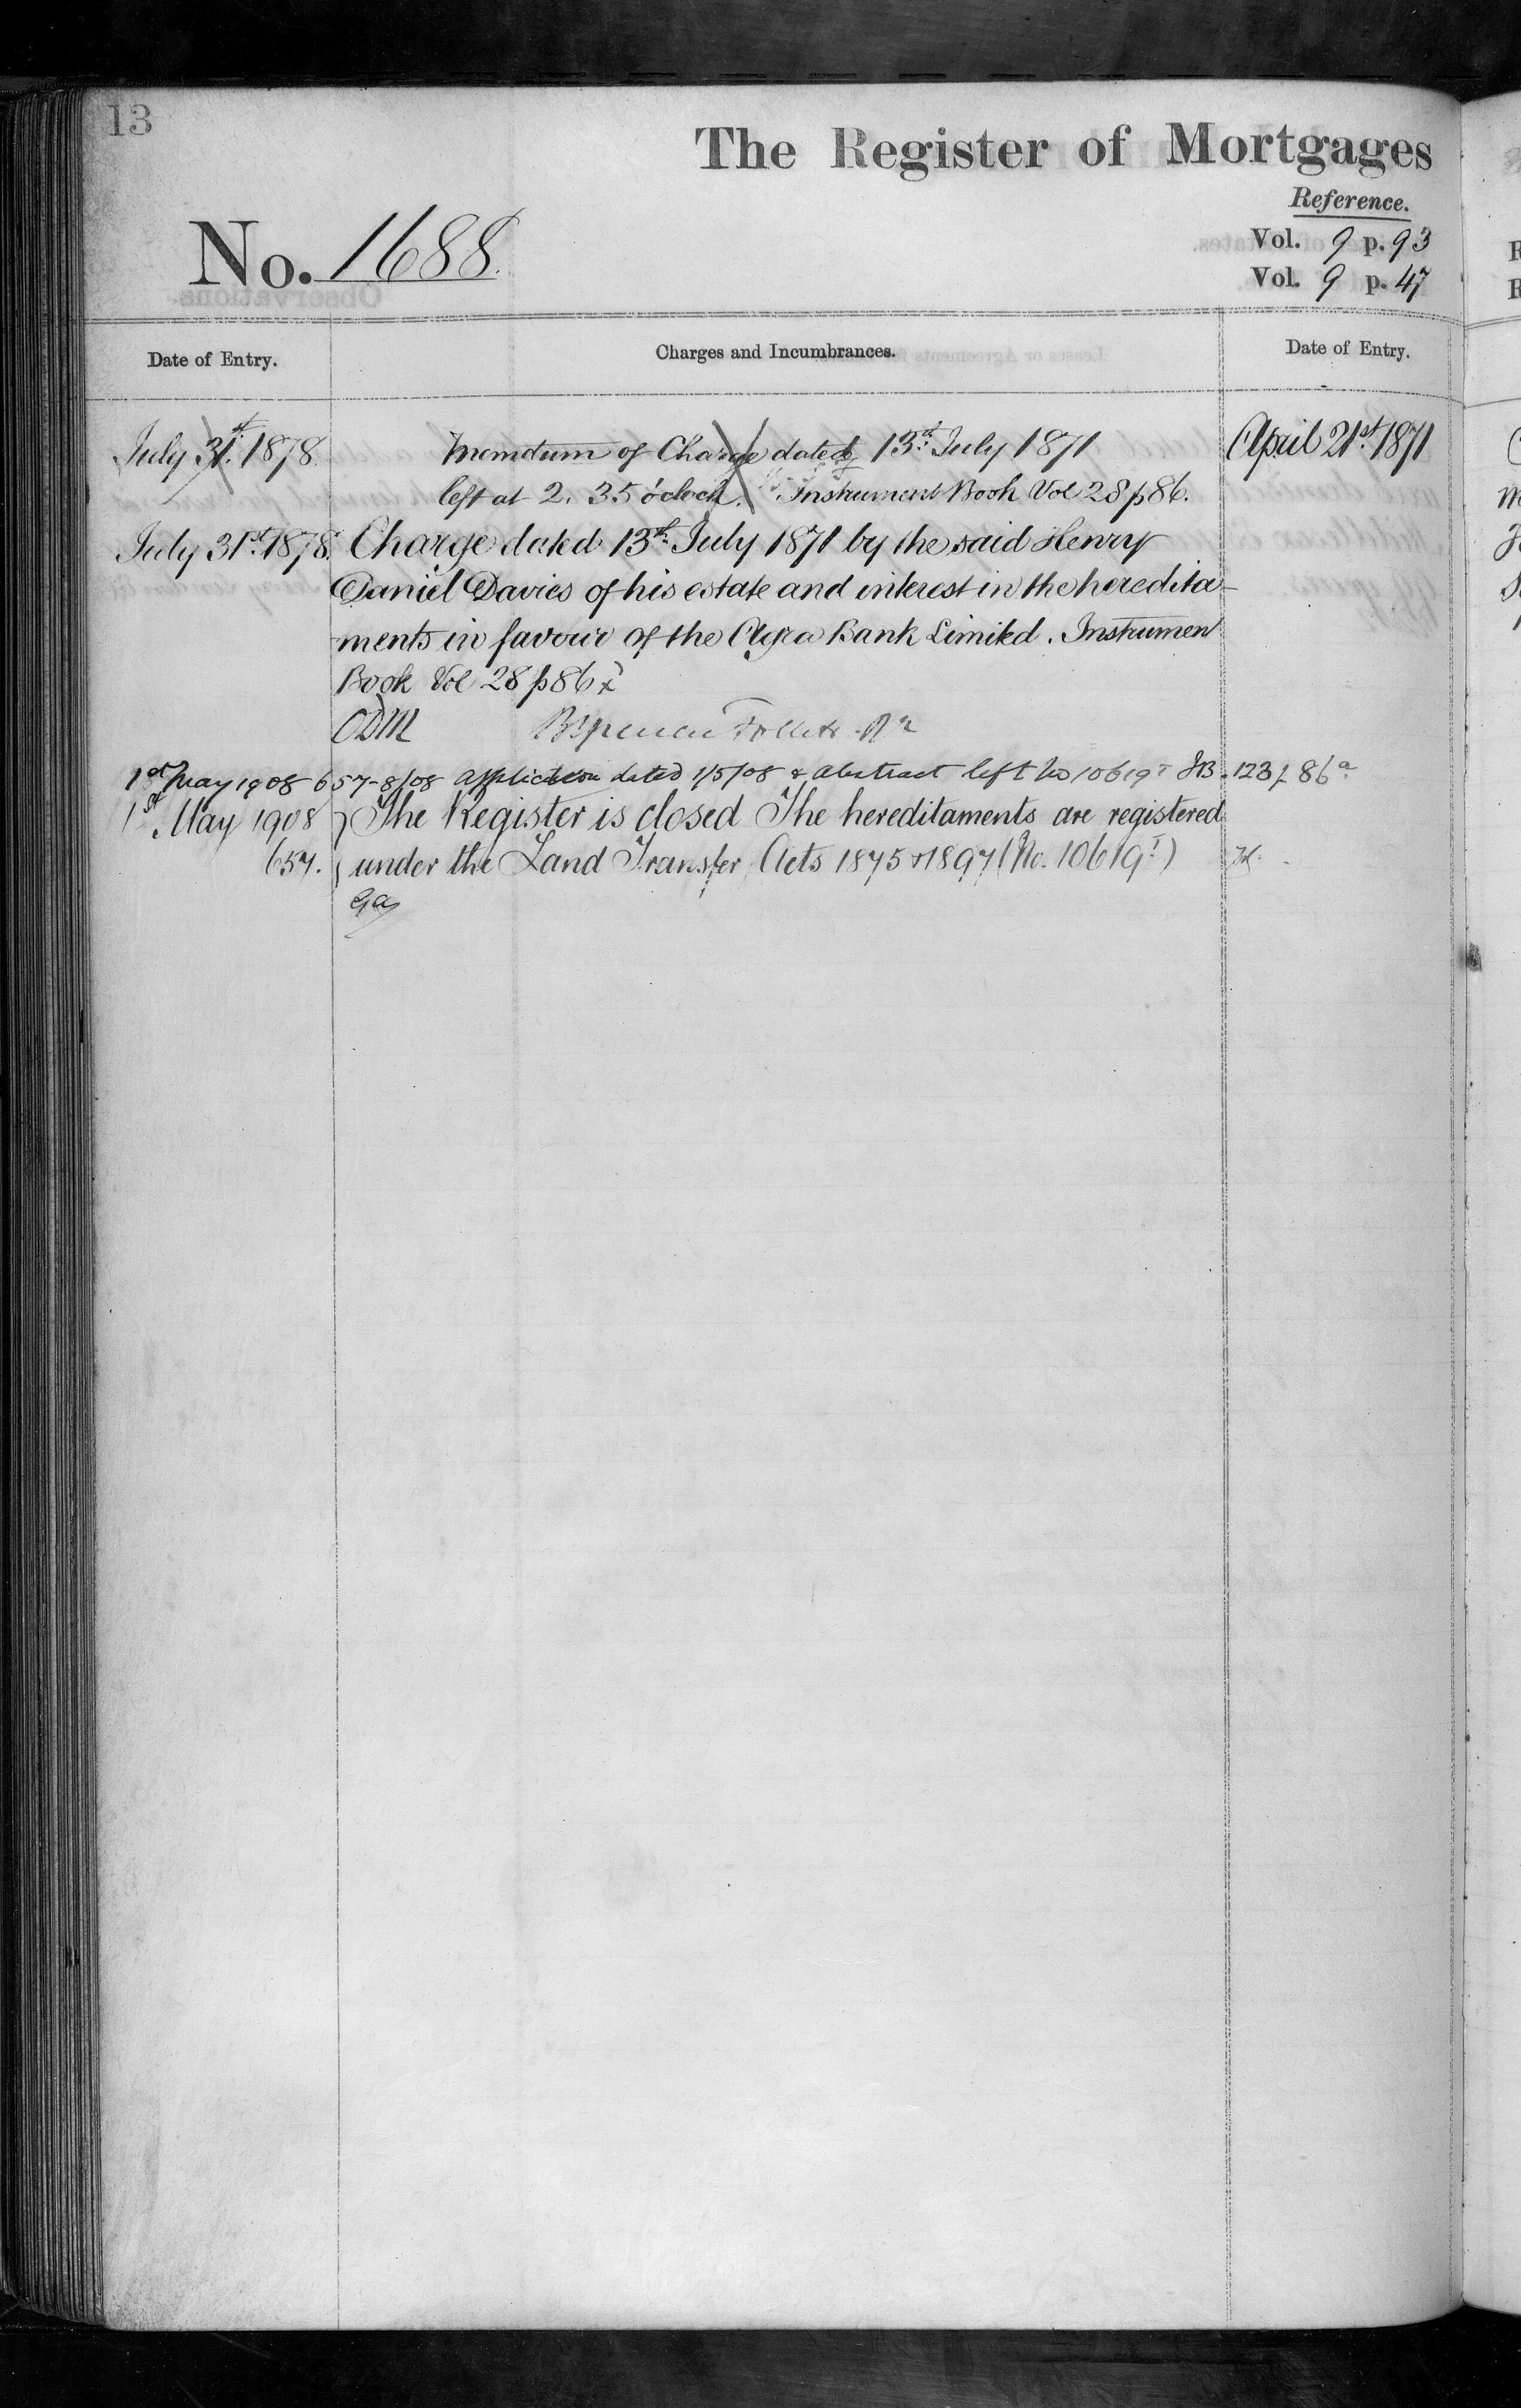 13
The Register of Mortgages
Reference.
Vol. 9 p. 93
No. 1688.
Vol. 9 p. 47
Date of Entry.
Charges and Incumbrances.
Date of Entry.
July 31st 1878
Memdum of Charge dated 13th July 1871
April 21st 1871
left at 2. 35 o'clock. Instrument Book Vol 28 p 86.
July 31st 1878.
Charge dated 13th July 1871 by the said Henry
Daniel Davies of his estate and interest in the heredita-
ments in favour of the Agra Bank Limited. Instrument
Book Vol 28 p 86 x
ODM
1st May 1908 657-8/08 Application dated 1/5/08 & abstract left No 10619 JB. 123 f 86a
1st May 1908
The Register is closed The hereditaments are registered
657.
under the Land Transfer Acts 1875 & 1897 (No. 10619)